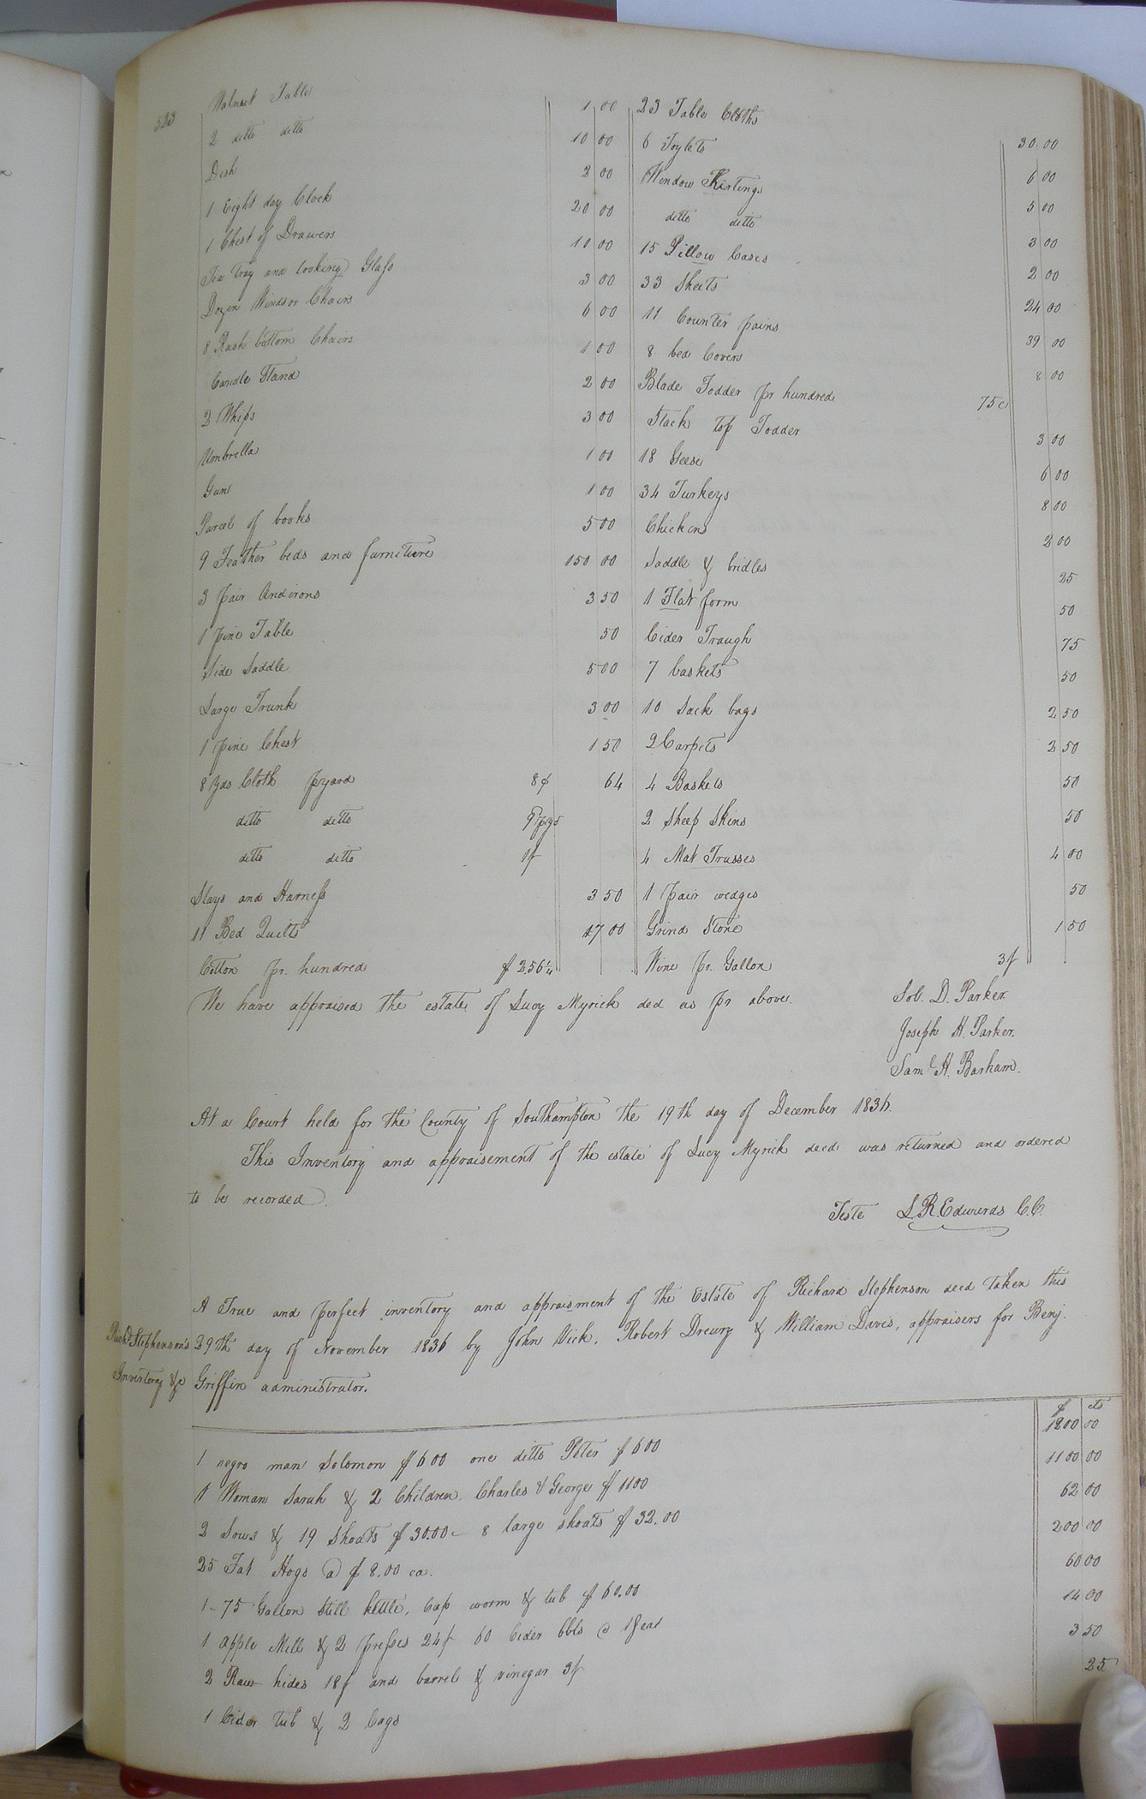 523
Walnut Table 1 00
2 ditto ditto 10 00
Desk 2 00
1 Eight day Clock 20 00
1 Chest of Drawers 10 00
Tea tray and looking Glass 3 00
Dozen Windsor Chairs 6 00
8 Rush bottom Chairs 1 00
Candle Stand 2 00
2 Whips 3 00
Umbrella 1 00
Gun 1 00
Parcel of books 5 00
9 Feather beds and furniture 150 00
3 pair Andirons 3 50
1 pine Table 50
Side Saddle 5 00
Large Trunk 3 00
1 pine Chest 1 50
8 Yds Cloth pr yard 8¢ 64
ditto ditto
ditto ditto 1/
Slays and Harness 3 50
11 Bed Quilts 17 00
Cotton pr. hundred $2.56¼
23 Table Cloths 30.00
6 Toylets 6 00
Window 5 00
ditto ditto 3 00
15 Pillow Cases 2 00
33 Sheets 24 00
11 Counter pains 39 00
8 bed Covers 8 00
Blade Fodder pr hundred 75c
Stack top Fodder 3 00
18 Geese 6 00
34 Turkeys 8 00
Chickens 2 00
Saddle & bridles 25
1 Flat form 50
Cider Traugh 75
7 Caskets 50
10 Sack bags 2 50
2 Carpets 2 50
4 Baskets 50
2 Sheep Skins 50
4 Mat Trusses 4 00
1 pair wedges 50
Grind Stone 1 50
Wine pr. Gallon 3/
We have appraised the estate of Lucy Myrick decd as pr above.
Sol. D. Parker
Joseph H. Parker.
Saml H. Barham.
At a Court held for the County of Southampton the 19th day of December 1836.
This Inventory and appraisement of the estate of Lucy Myrick decd was returned and ordered
to be recorded.
Teste L. R. Edwards C.C.
Richd Stephenson's
Inventory &c
A True and perfect inventory and appraisment of the Estate of Richard Stephenson decd taken this
29th day of November 1836 by John Vick, Robert Drewry & William Davis, appraisers for Benj.
Griffin administrator.
$ cts
1 negro man Solomon $600 one ditto Peter $600 1200 00
1 Woman Sarah & 2 Children. Charles & George $1100 1100 00
2 Sows & 19 Shoats $30.00 – 8 large shoats $32.00 62 00
25 Fat Hogs @ $8.00 ea. 200 00
1 – 75 Gallon Still kettle, Cap worm & tub $60.00 60 00
1 Apple Mill & 2 presses 24/ 60 Cider bbls @ 1/ ea 14 00
2 Raw hides 18/ and barrel & vinegar 3/ 3 50
1 Cider tub & 2 Cags 25